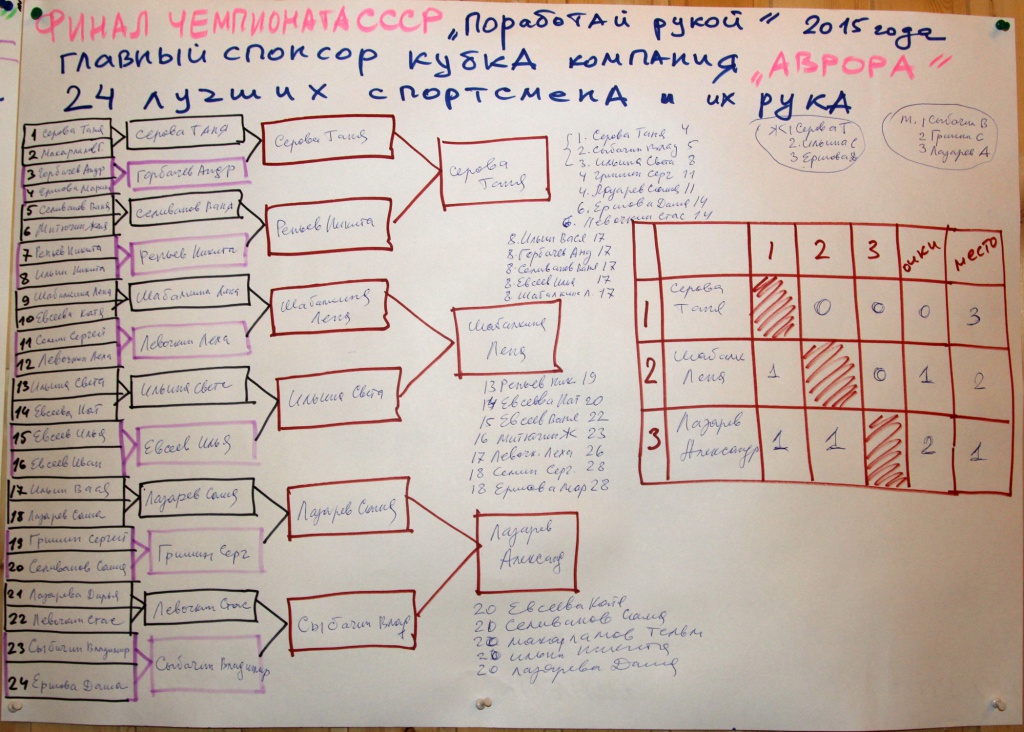 ФИНАЛ ЧЕМПИОНАТА СССР „Поработай рукой" 2015 года
главный спонсор кубкА компания „АВРОРА"
24 лучших спортсменА и их рукА
1 Серова Таня
2 Макарламов Т
3 Горбачев Андр
4 Ершова Мари
5 Селиванов Ваня
6 Митюгин Женя
7 Реньев Никита
8 Ильин Никита
9 Шабалкина Лена
10 Евсеева Катя
11 Семин Сергей
12 Левочкин Леха
13 Ильина Света
14 Евсеева Нат
15 Евсеев Илья
16 Евсеев Иван
17 Ильин Вася
18 Лазарев Саша
19 Гришин Сергей
20 Селиванов Саша
21 Лазарева Дарья
22 Левочкин Стас
23 Сыбачин Владимир
24 Ершова Даша
Серова Таня
Горбачев Андр
Селиванов Ваня
Реньев Никита
Шабалкина Лена
Левочкин Леха
Ильина Света
Евсеев Илья
Лазарев Саша
Гришин Серг
Левочкин Стас
Сыбачин Владимир
Серова Таня
Реньев Никита
Шабалкина
Лена
Ильина Света
Лазарев Саша
Сыбачин Влад
Серова
Таня
Шабалкина
Лена
Лазарев
Александ
1. Серова Таня 4
2. Сыбачин Влад 5
3. Ильина Света 8
4 Гришин Серг 11
4. Лазарев Саша 11
6. Ершова Даша 14
6. Левочкин Стас 14
8. Ильин Вася 17
8. Горбачев Анд 17
8. Селиванов Ваня 17
8. Евсеев Илья 17
8 Шабалкина Л. 17
13 Реньев Ник 19
14 Евсеева Нат 20
15 Евсеев Ваня 22
16 Митюгин Ж 23
17 Левочк. Леха 26
18 Семин Серг. 28
18 Ершова Мар 28
20 Евсеева Катя
20 Селиванов Саша
20 Макарламов
20 Ильин Никита
20 Лазарева Даша
Ж 1 Серова Т
2. Ильина С
3 Ершова Д
М. 1 Сыбачин В
2 Гришин С
3 Лазарев А
1 2 3 очки место
1 Серова Таня 0 0 0 3
2 Шабалк Лена 1 0 1 2
3 Лазарев Александр 1 1 2 1